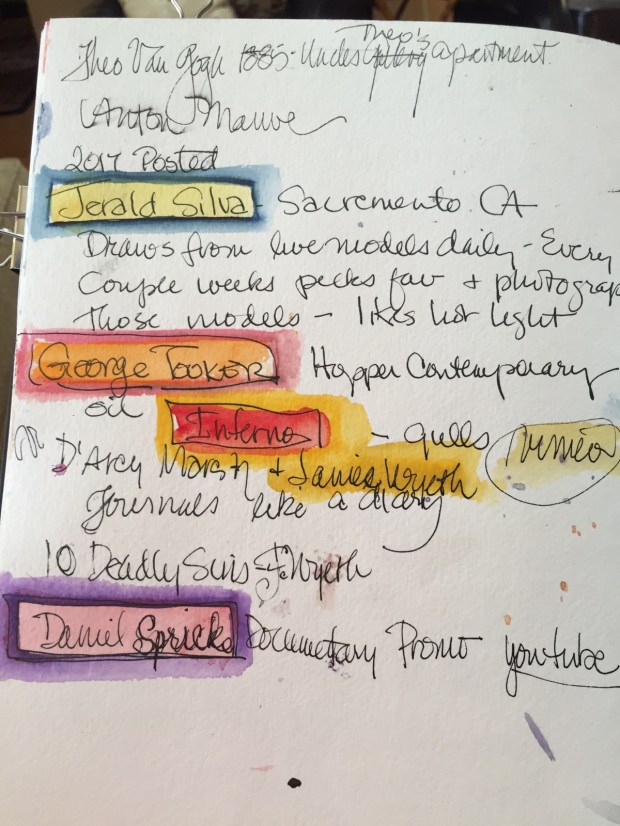 Theo Van Gogh 1885 - Under Theo's apartment
(Anton Mauve
2017 Posted
Jerald Silva - Sacremento CA
Draws from live models daily - Every
Couple weeks pecks fav + photograp
those models - likes hot light
George TOOKER Hopper Contemporary
oil Inferno - gulls
D'Arcy Marsh + Jamie Wyeth
Journals like a diary
10 Deadly Sins - J. Wyeth
Daniel Spricks Documentary Promo youtube